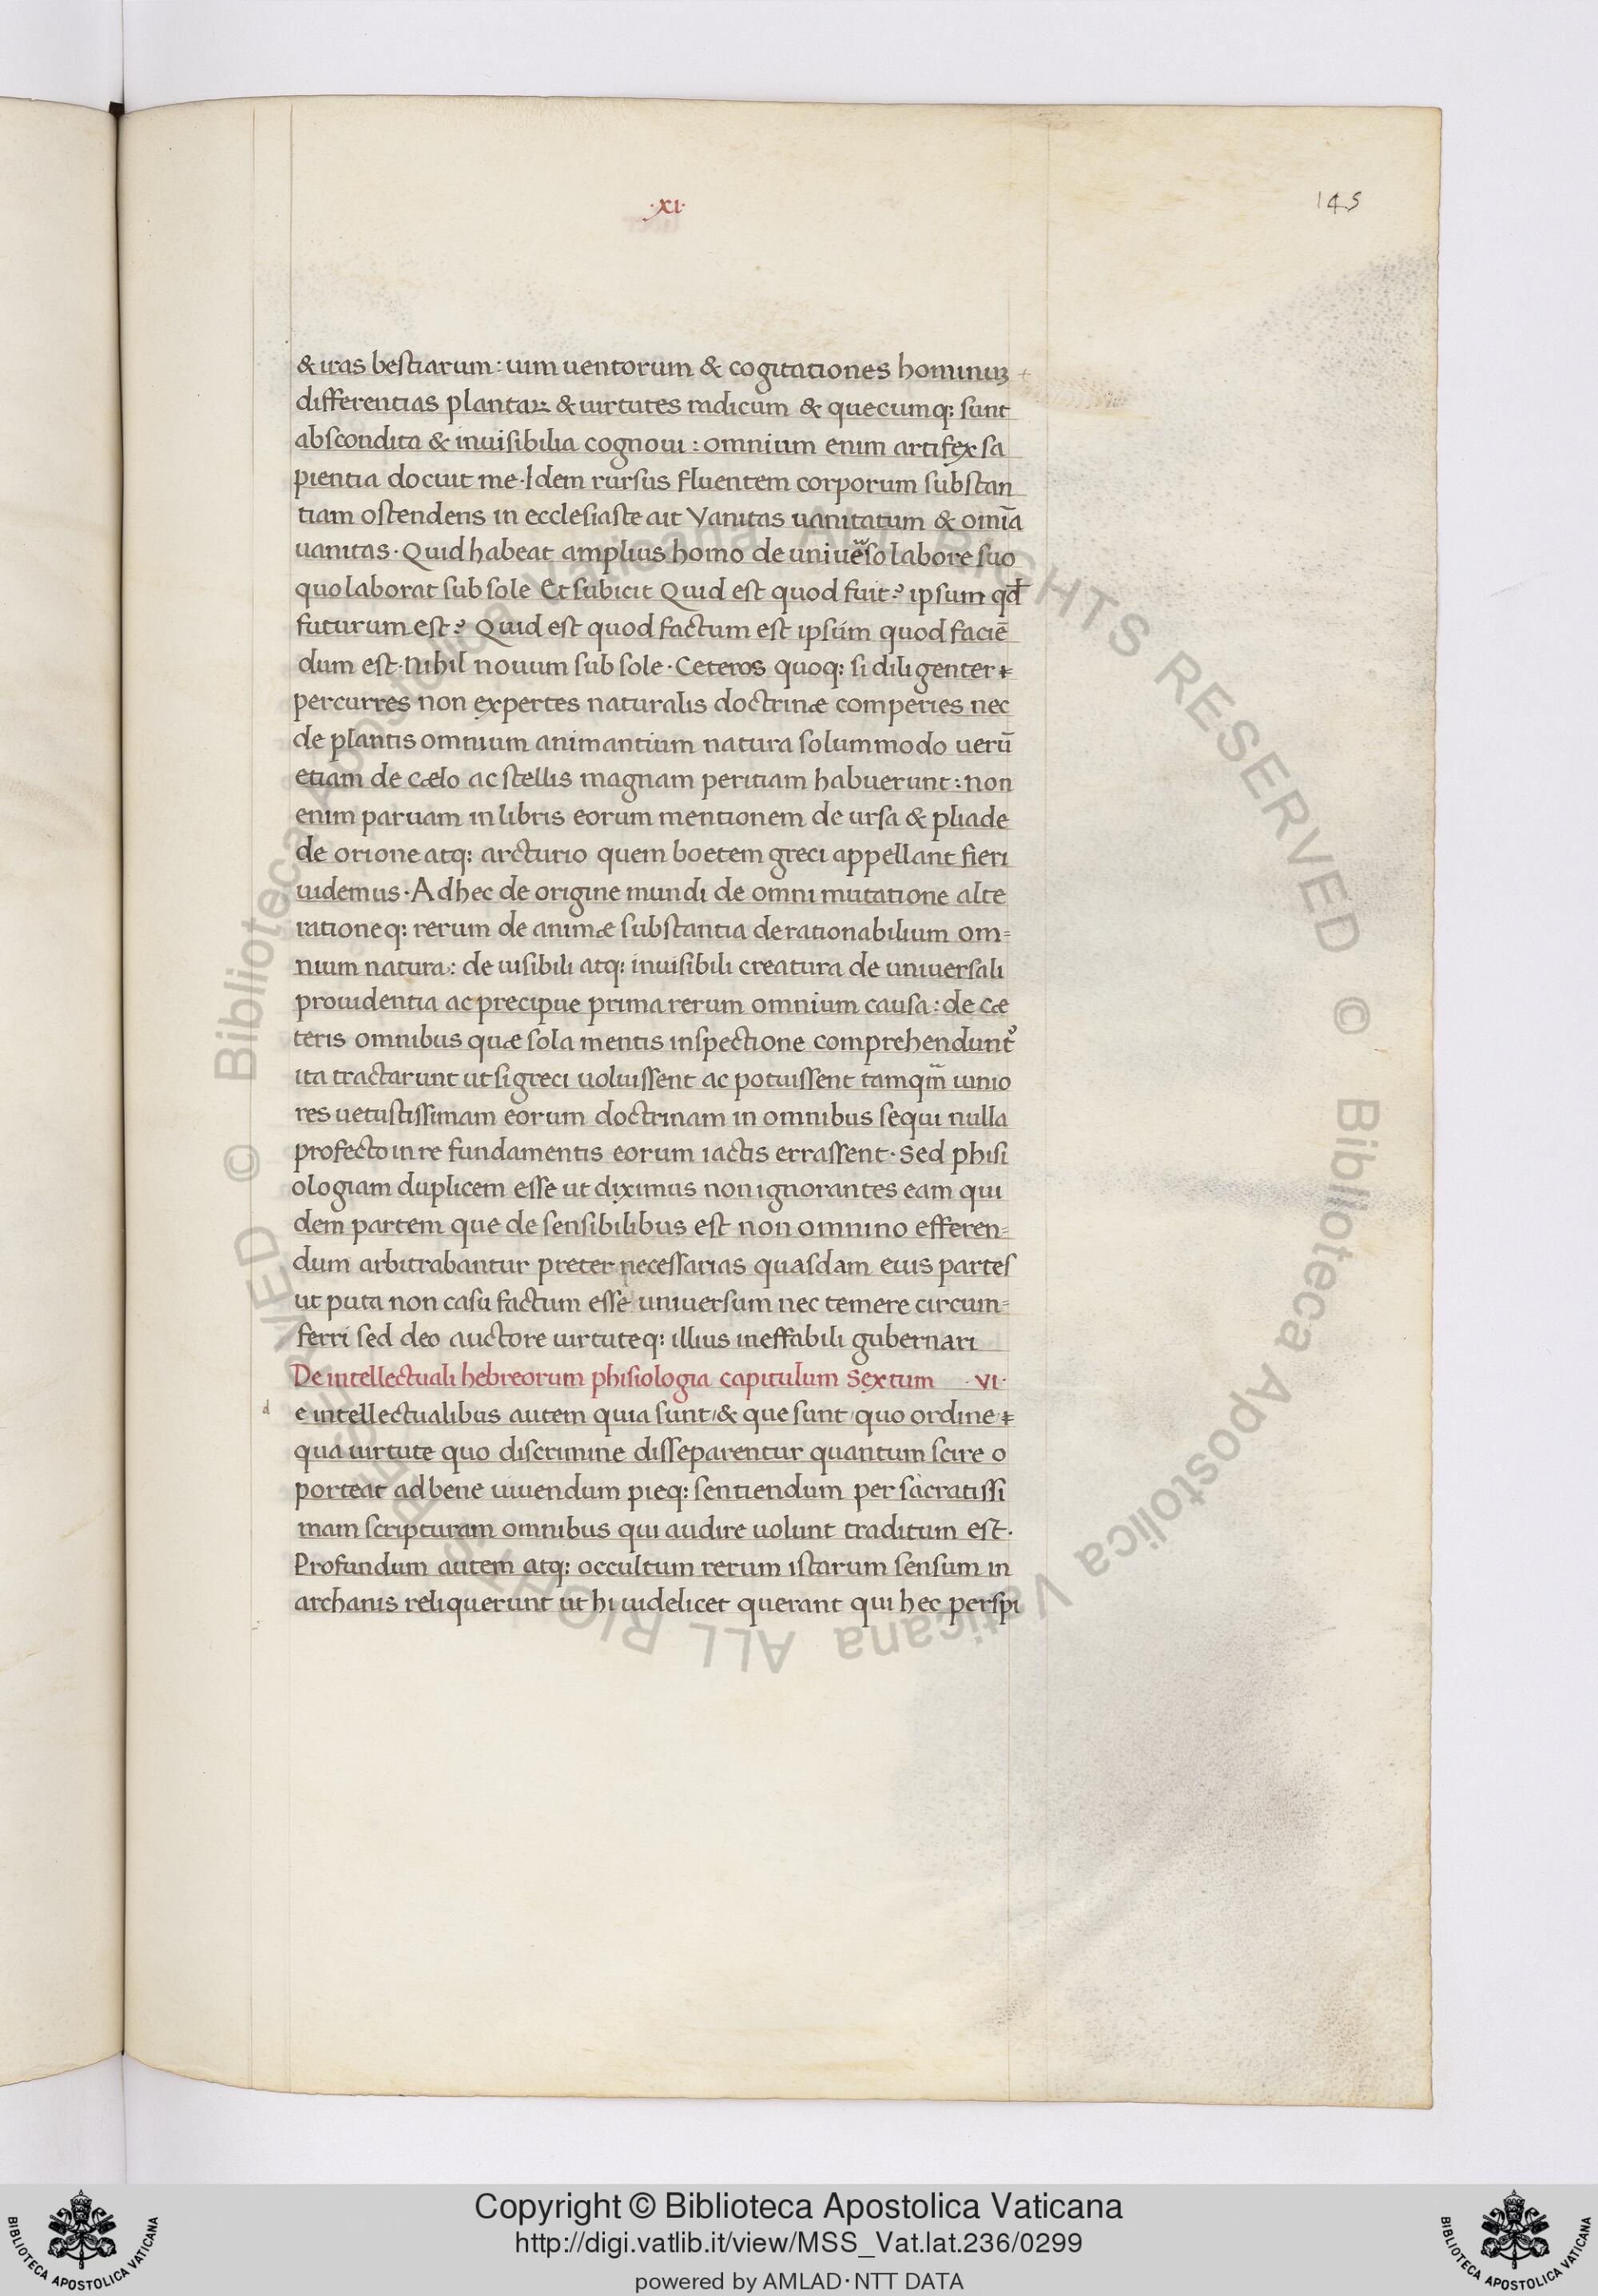 ·xi·
145
& iras bestiarum: uim uentorum & cogitationes hominuꝫ
differentias plantaꝝ & uirtutes radicum & quecumq: sunt
abscondita & inuisibilia cognoui: omnium enim artifex sa
pientia docuit me· Idem rursus fluentem corporum substan
tiam ostendens in ecclesiaste ait Vanitas uanitatum & om̅ia
uanitas· Quid habeat amplius homo de uniue̅so labore suo
quo laborat sub sole Et subicit Quid est quod fuit? ipsum qd̅
futurum est? Quid est quod factum est ipsum quod facie̅
dum est· Nihil nouum sub sole· Ceteros quoq: si diligenter
percurres non expertes naturalis doctrinæ comperies nec
de plantis omnium animantium natura solummodo ueru̅
etiam de cælo ac stellis magnam peritiam habuerunt: non
enim paruam in libris eorum mentionem de ursa & pliade
de orione atq: arcturio quem boetem greci appellant fieri
uidemus· Adhec de origine mundi de omni mutatione alte
rationeq: rerum de animæ substantia de rationabilium om=
nium natura: de uisibili atq: inuisibili creatura de uniuersali
prouidentia ac precipue prima rerum omnium causa: de cæ
teris omnibus quæ sola mentis inspectione comprehendunt᷒
ita tractarunt ut si greci uoluissent ac potuissent tamqm̅ iunio
res uetustissimam eorum doctrinam in omnibus sequi nulla
profecto in re fundamentis eorum iactis errassent· Sed phisi
ologiam duplicem esse ut diximus non ignorantes eam qui
dem partem que de sensibilibus est non omnino efferen=
dum arbitrabantur preter necessarias quasdam eius partes
ut puta non casu factum esse uniuersum nec temere circum=
ferri sed deo auctore uirtuteq: illius ineffabili gubernari
De intellectuali hebreorum phisiologia capitulum Sextum ·VI·
d e intellectualibus autem quia sunt/& que sunt/quo ordine
qua uirtute quo discrimine disseparentur quantum scire o
porteat ad bene uiuendum pieq: sentiendum per sacratissi
mam scripturam omnibus qui audire uolunt traditum est·
Profundum autem atq: occultum rerum istarum sensum in
archanis reliquerunt ut hi uidelicet querant qui hec perspi
© Biblioteca Apostolica Vaticana ALL RIGHTS RESERVED © Biblioteca Apostolica Vaticana ALL RIGHTS RESERVED
BIBLIOTECA APOSTOLICA VATICANA
Copyright © Biblioteca Apostolica Vaticana
http://digi.vatlib.it/view/MSS_Vat.lat.236/0299
powered by AMLAD·NTT DATA
BIBLIOTECA APOSTOLICA VATICANA